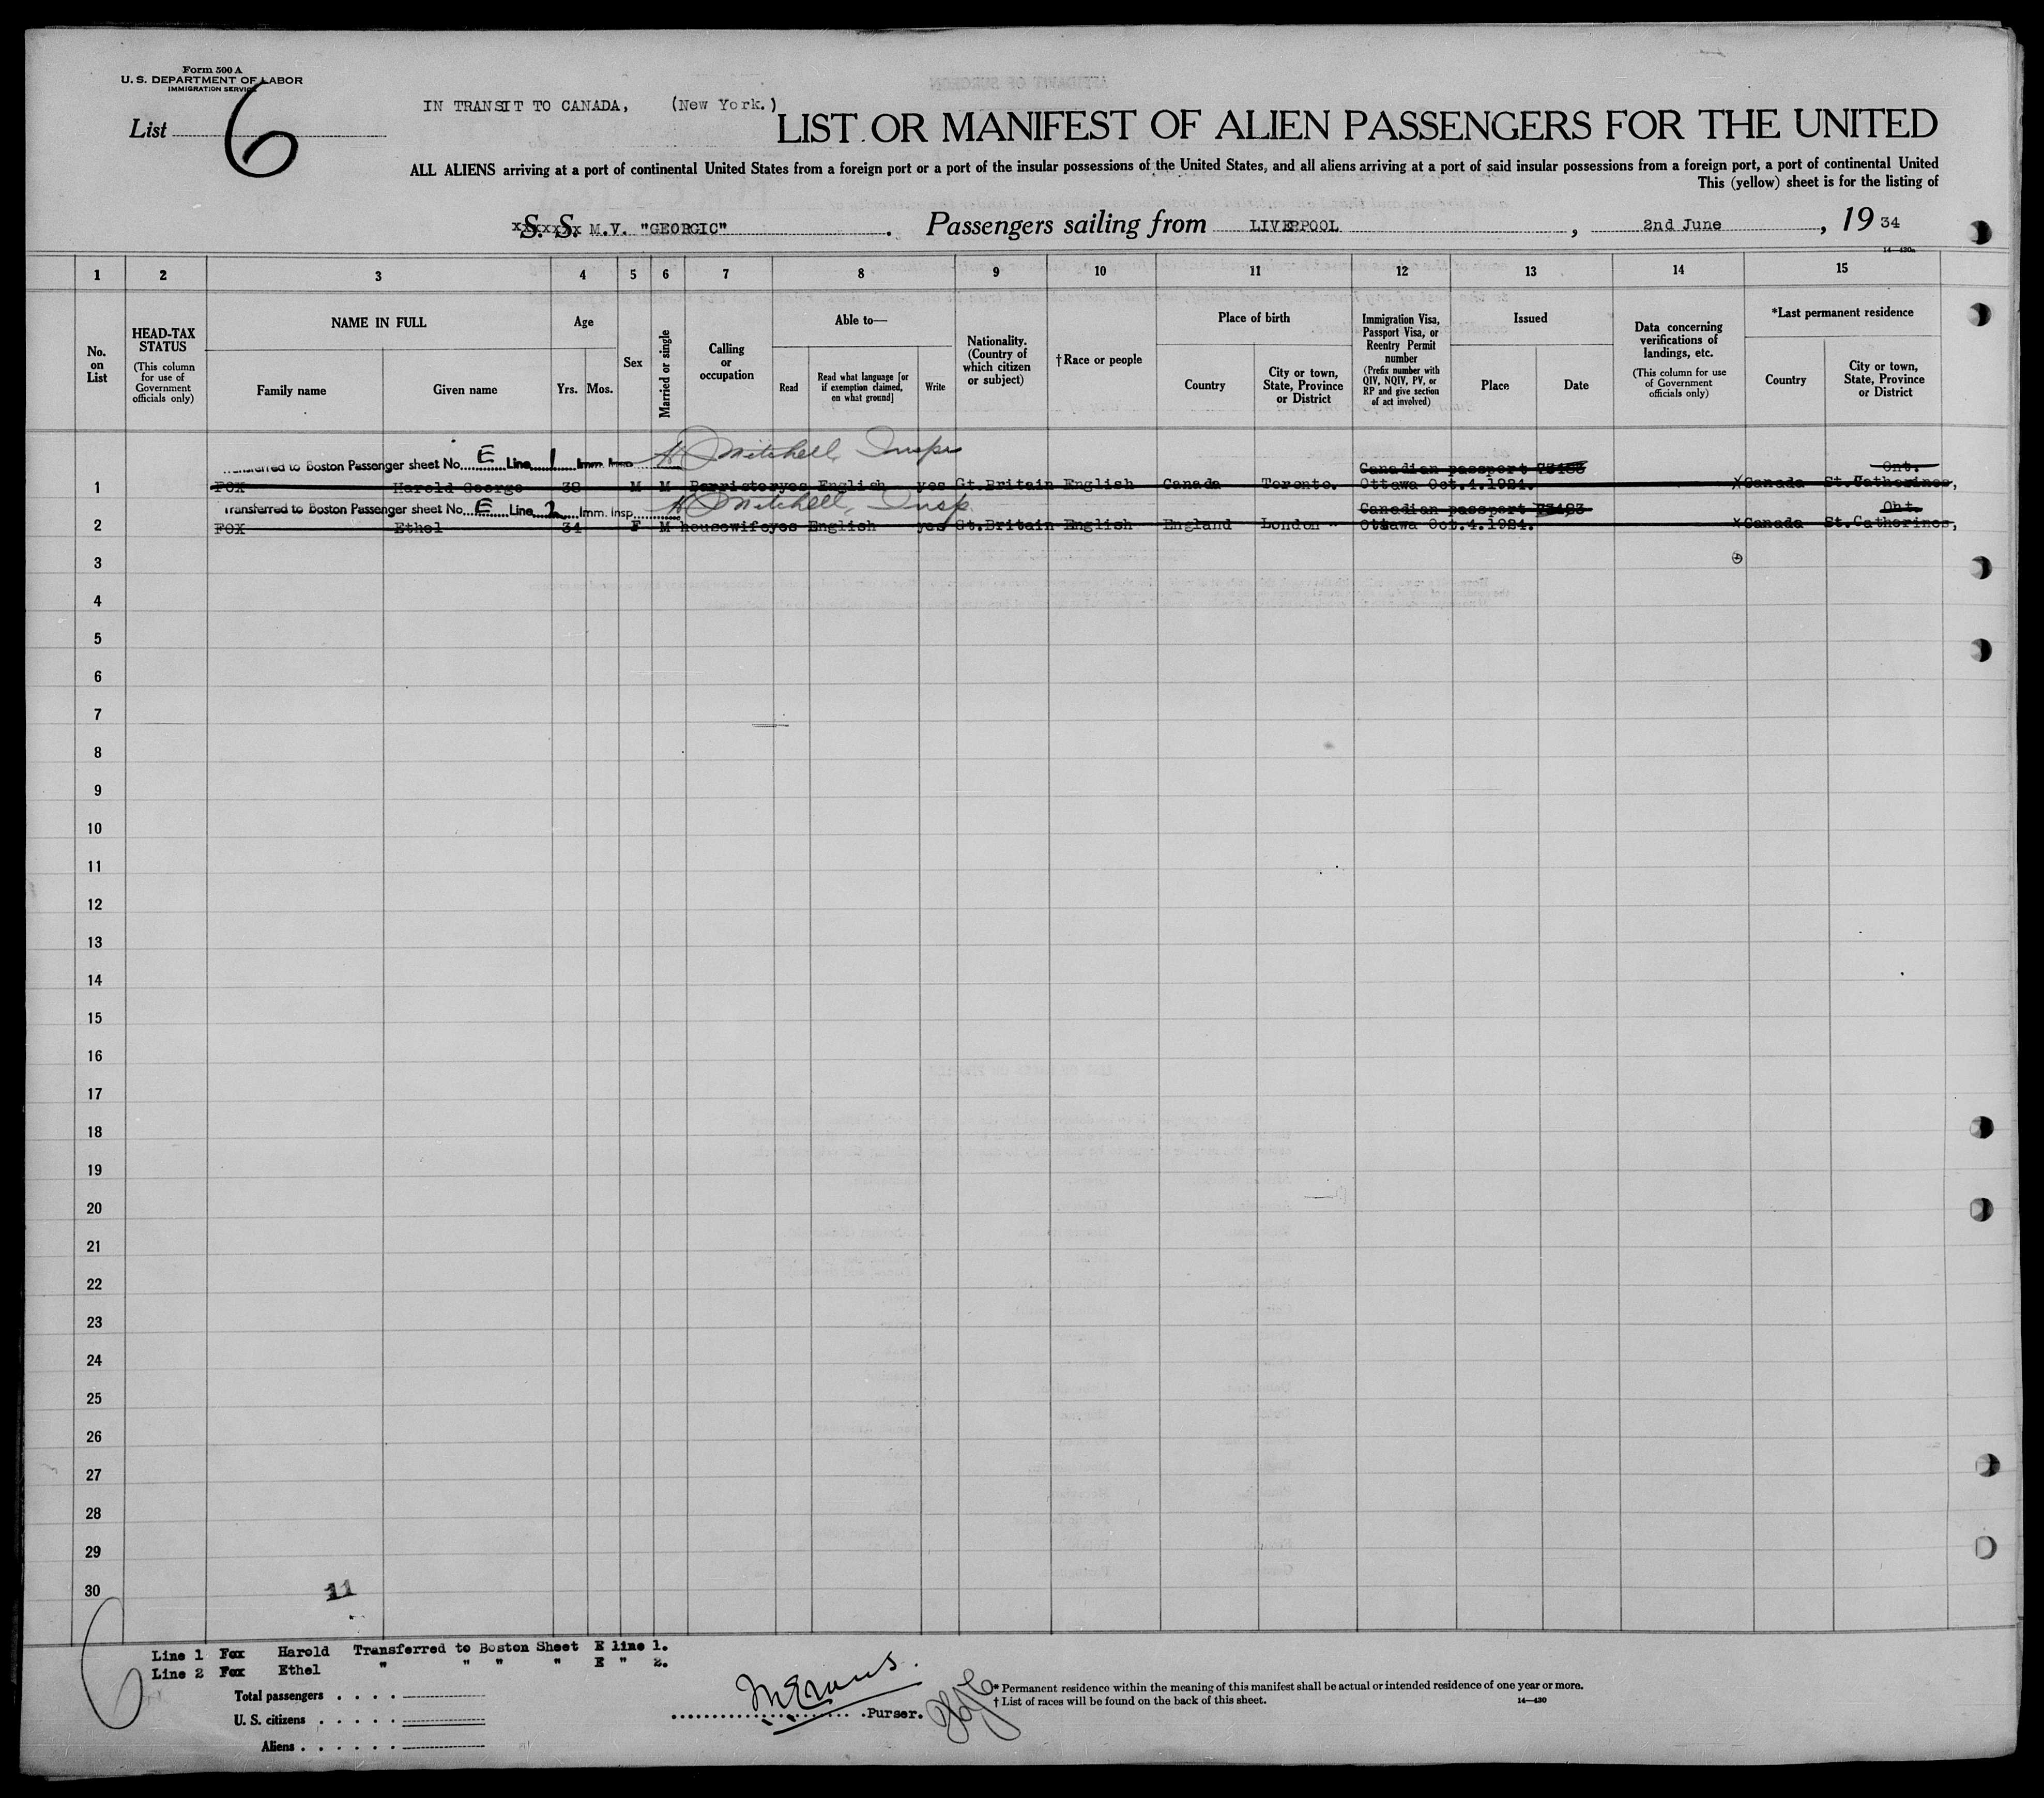 Form 500 A
U. S. DEPARTMENT OF LABOR
IMMIGRATION SERVICE
List 6
IN TRANSIT TO CANADA, (New York.)
LIST OR MANIFEST OF ALIEN PASSENGERS FOR THE UNITED
ALL ALIENS arriving at a port of continental United States from a foreign port or a port of the insular possessions of the United States, and all aliens arriving at a port of said insular possessions from a foreign port, a port of continental United
This (yellow) sheet is for the listing of
S. S. M.V. "GEORGIC" . Passengers sailing from LIVERPOOL , 2nd June , 19 34
14—430a
1 2 3 4 5 6 7 8 9 10 11 12 13 14 15
No. on List
HEAD-TAX STATUS
(This column for use of Government officials only)
NAME IN FULL
Family name
Given name
Age
Yrs.
Mos.
Sex
Married or single
Calling or occupation
Able to—
Read
Read what language [or if exemption claimed, on what ground]
Write
Nationality. (Country of which citizen or subject)
†Race or people
Place of birth
Country
City or town, State, Province or District
Immigration Visa, Passport Visa, or Reentry Permit number
(Prefix number with QIV, NQIV, PV, or RP and give section of act involved)
Issued
Place
Date
Data concerning verifications of landings, etc.
(This column for use of Government officials only)
*Last permanent residence
Country
City or town, State, Province or District
Transferred to Boston Passenger sheet No. E Line 1 Imm. Insp. H Mitchell, Insp.
Canadian passport Ont.
1 FOX Harold George 38 M M Barrister yes English yes Gt.Britain English Canada Toronto. Ottawa Oct.4.1924. x Canada St.Catherines,
Transferred to Boston Passenger sheet No. E Line 2 Imm. Insp. H Mitchell, Insp.
Canadian passport Ont.
2 FOX Ethel 34 F M housewife yes English yes Gt.Britain English England London Ottawa Oct.4.1924. x Canada St.Catherines,
3
4
5
6
7
8
9
10
11
12
13
14
15
16
17
18
19
20
21
22
23
24
25
26
27
28
29
30
11
Line 1 Fox Harold Transferred to Boston Sheet E line 1.
Line 2 Fox Ethel " " " " E " 2.
Total passengers
U. S. citizens
Aliens
Purser.
* Permanent residence within the meaning of this manifest shall be actual or intended residence of one year or more.
† List of races will be found on the back of this sheet.
14—430